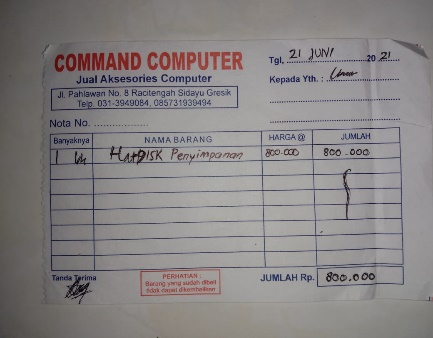 COMMAND COMPUTER
Jual Aksesories Computer
Jl. Pahlawan No. 8 Racitengah Sidayu Gresik
Telp. 031-3949084, 085731939494
Tgl, 21 JUNI 20 21
Kepada Yth. : Umum
Nota No.
Banyaknya NAMA BARANG HARGA @ JUMLAH
1 Hardisk Penyimpanan 800.000 800.000
Tanda Terima
PERHATIAN :
Barang yang sudah dibeli
tidak dapat dikembalikan
JUMLAH Rp. 800.000